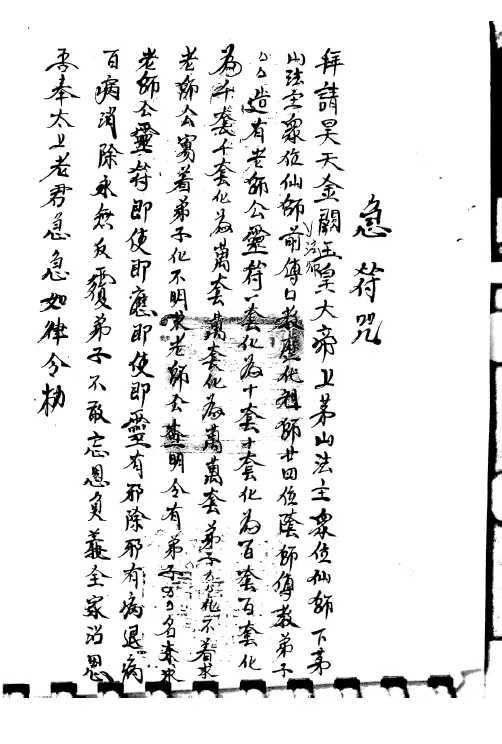 急符咒
拜請昊天金闕玉皇大帝上茅山法主眾位仙師下茅
山法主眾位仙師前傳口教歷代祖師廿四位陰師傳教弟子
造有老師公靈符一套化為十套十套化為百套百套化
為千套千套化為萬套萬套化為萬萬套弟子化不着求
老師公寫着弟子化不明求老師公查明今有弟子名來求
老師公靈符即使即應即使即靈有邪除邪有病退病
百病消除永無反覆弟子不敢忘恩負義全家沾恩
吾奉太上老君急急如律令敕